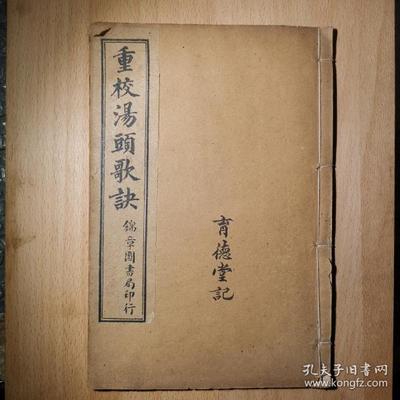 重校湯頭歌訣
錦章圖書局印行
育德堂記
孔夫子旧书网
www.kongfz.com